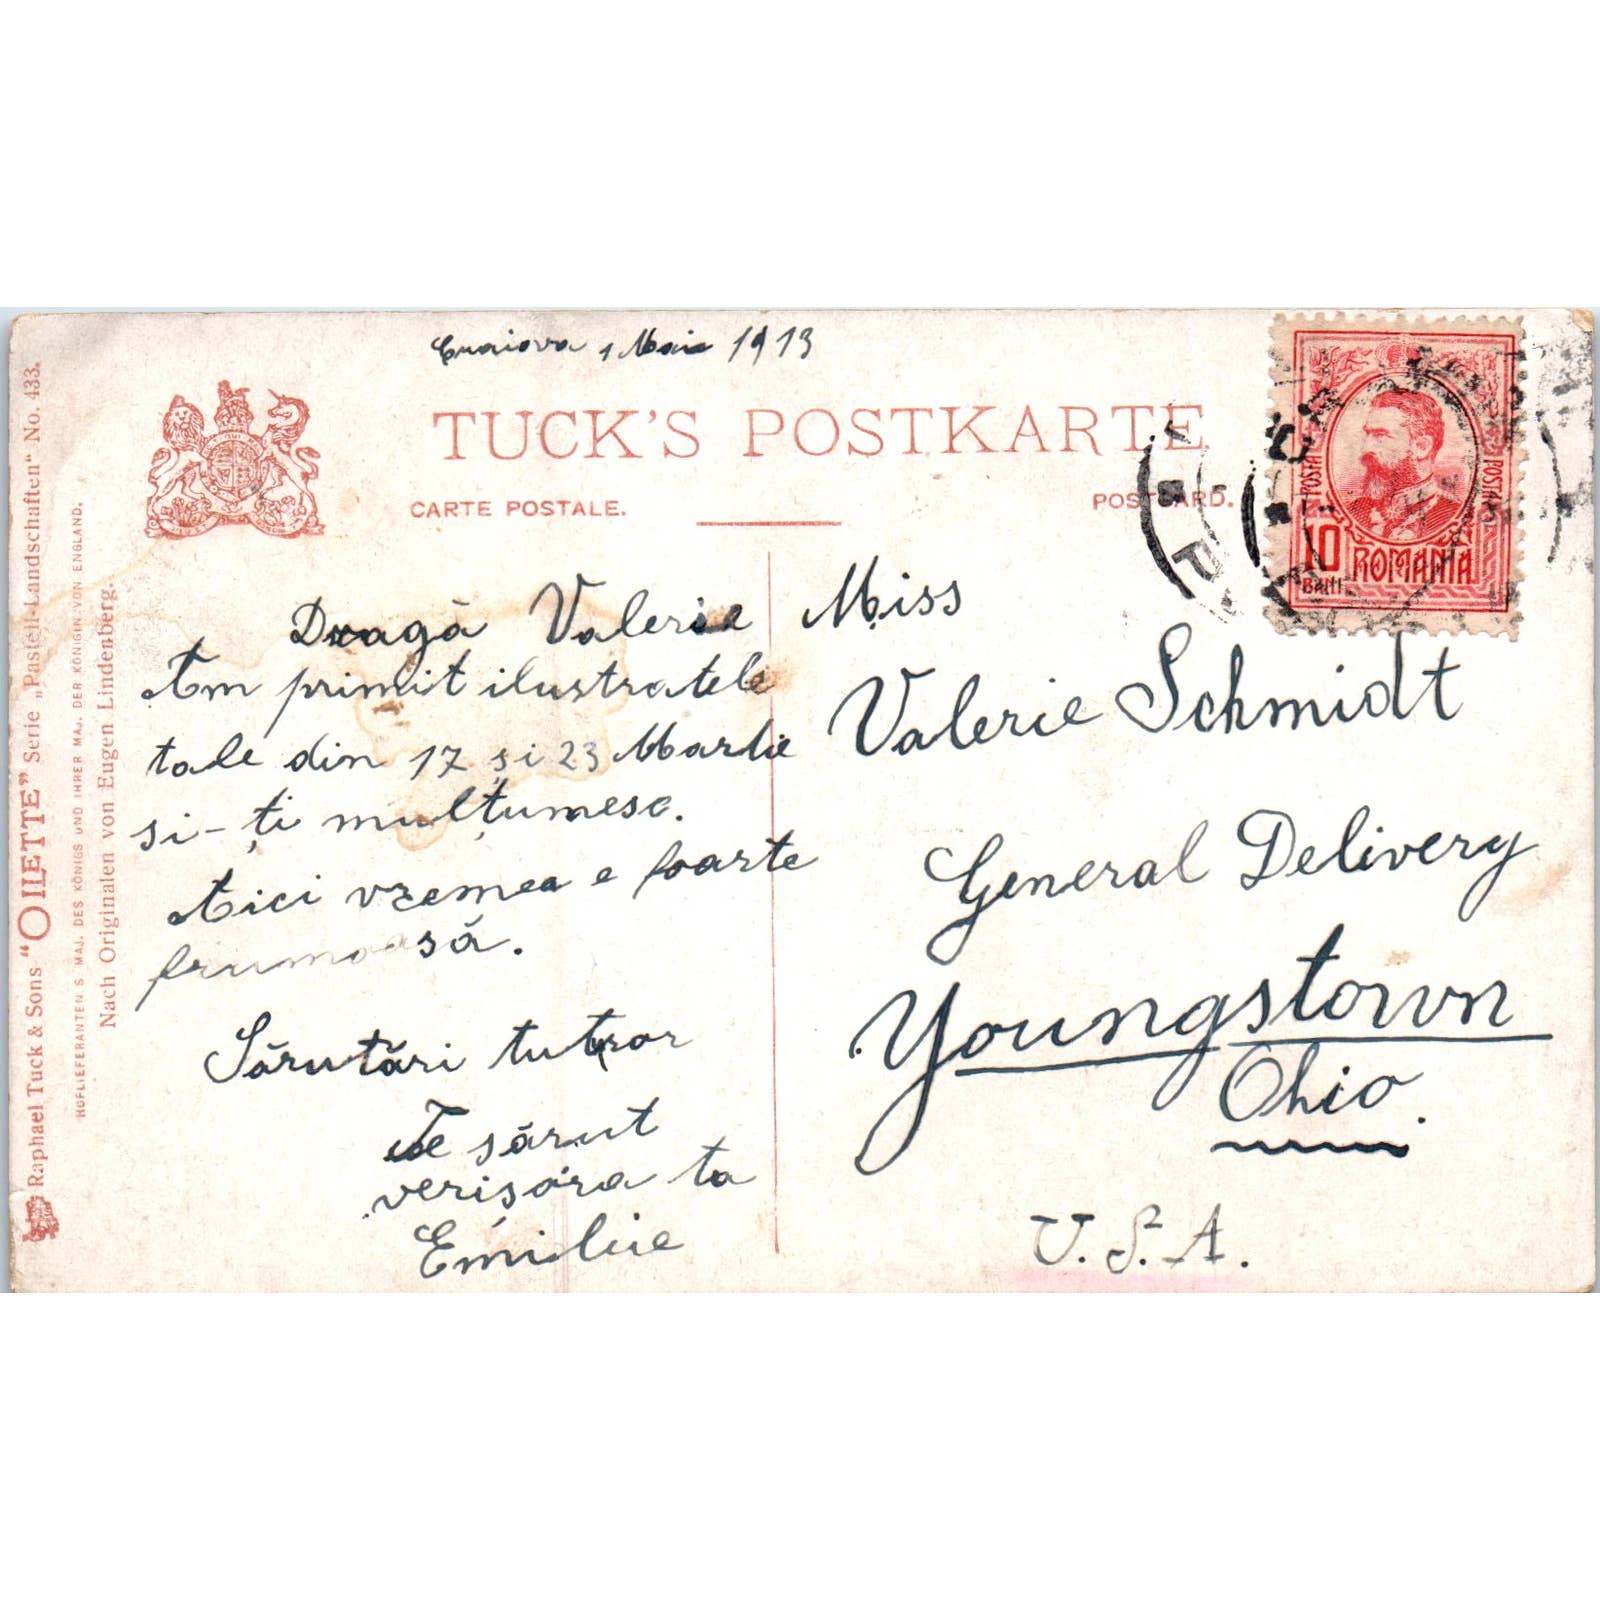 Craiova 1 Mai 1913
TUCK'S POSTKARTE
CARTE POSTALE.
POSTCARD.
Dragă Valerie
Am primit ilustratele
tale din 17 și 23 Martie
si-ți mulțumesc.
Aici vremea e foarte
frumoasă.
Sărutări tutror
Te sărut
verișóra ta
Emilie
Miss
Valerie Schmidt
General Delivery
Youngstown
Ohio.
U.S.A.
POSTA
POSTALE
10
BANI
ROMANIA
Raphael Tuck & Sons "OILETTE" Serie „Pastell-Landschaften" No. 433.
HOFLIEFERANTEN S. MAJ. DES KÖNIGS UND IHRER MAJ. DER KÖNIGIN VON ENGLAND.
Nach Originalen von Eugen Lindenberg.